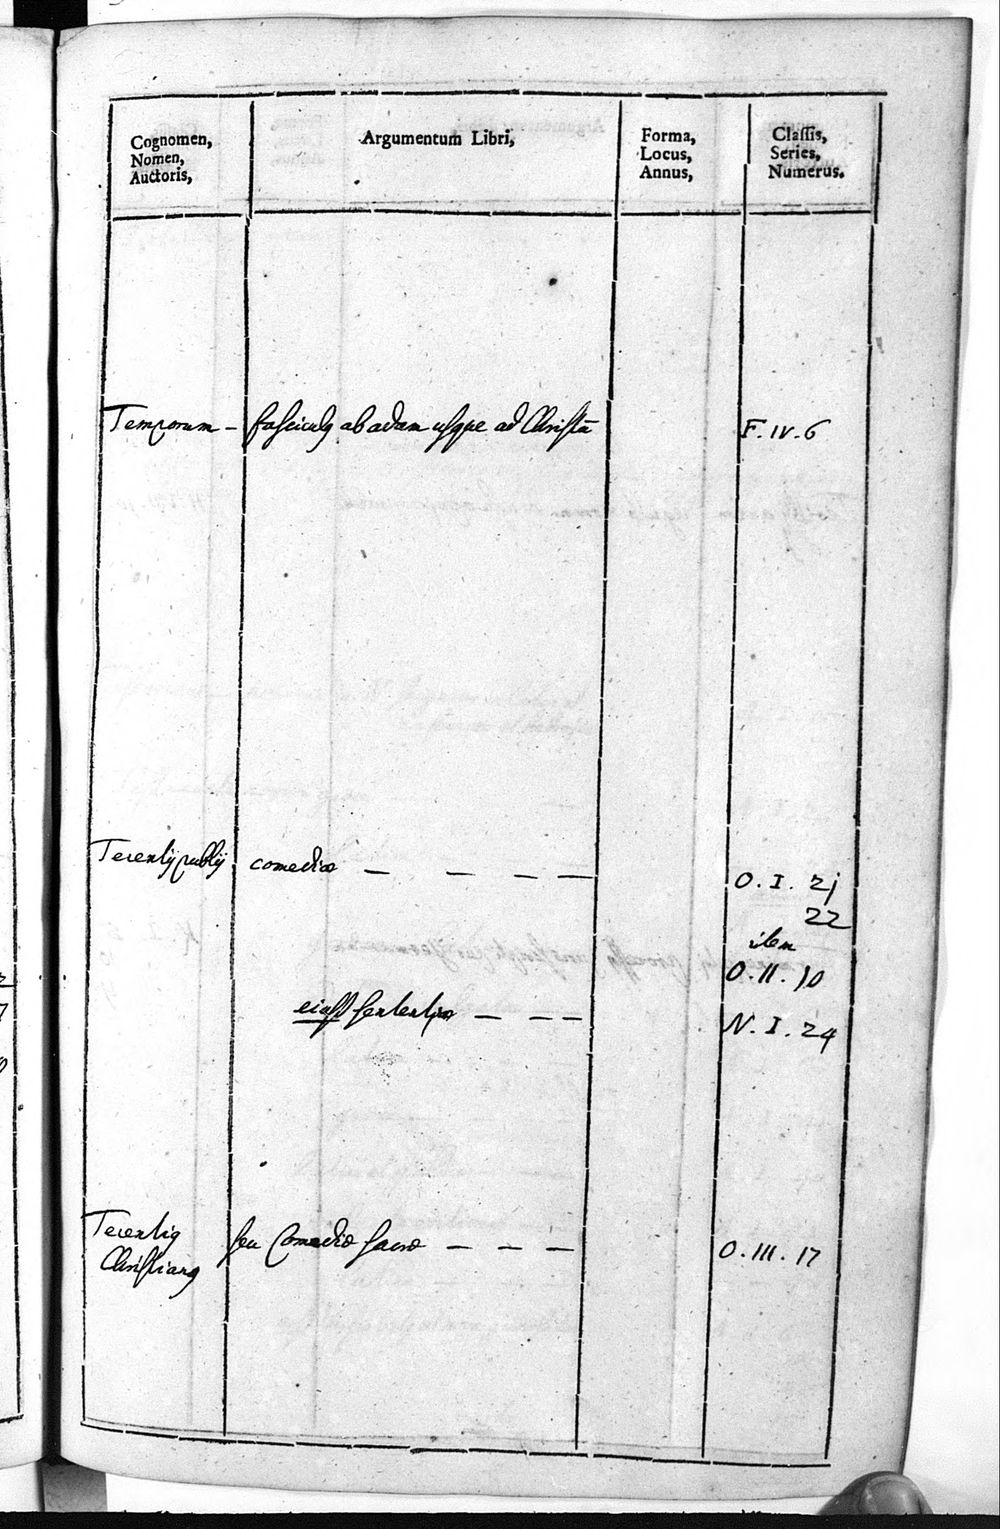 Cognomen,
Nomen,
Auctoris,
Argumentum Libri,
Forma,
Locus,
Annus,
Classis,
Series,
Numerus.
Temporum – fasciculꝯ ab adam usque ad Christū F. IV. 6
Terentij publij comediæ — — — — O. I. 21
22
item
O. II. 10
eiusd sententiæ — — — N. I. 24
Terentiꝯ
Christianꝯ
seu Comediæ sacræ — — — O. III. 17